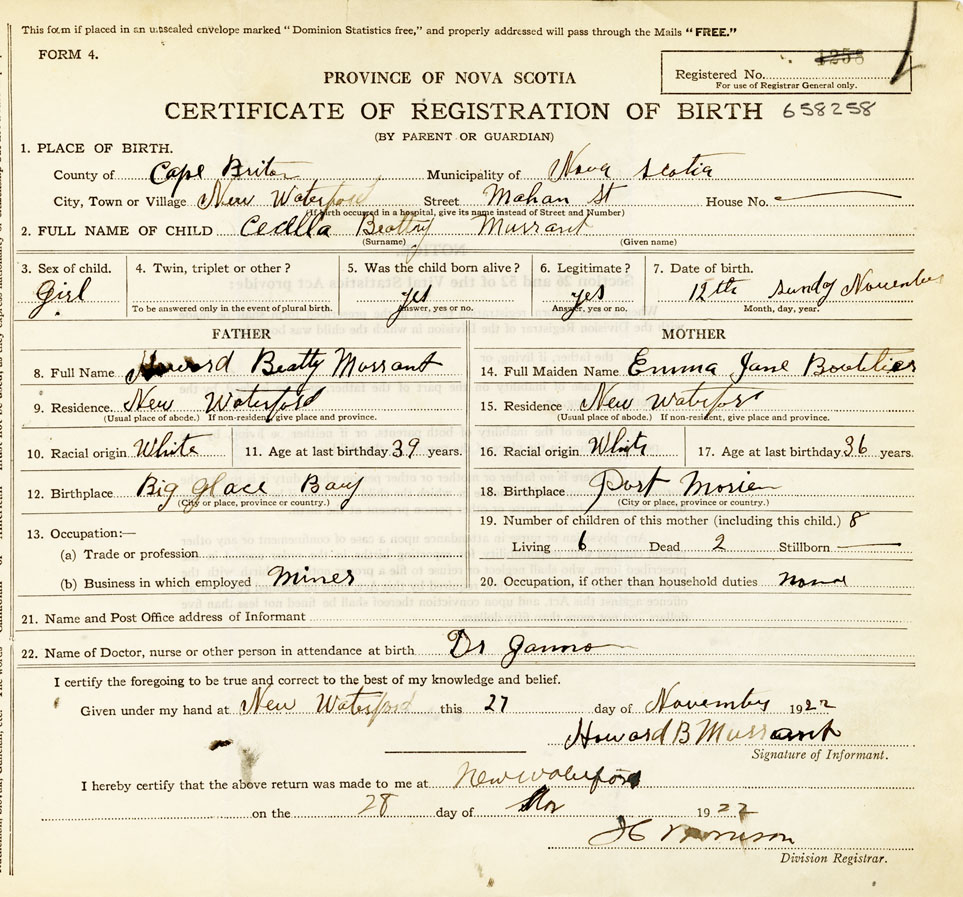 This form if placed in an unsealed envelope marked "Dominion Statistics free," and properly addressed will pass through the Mails "FREE."
FORM 4.
1258
PROVINCE OF NOVA SCOTIA
Registered No.
For use of Registrar General only.
CERTIFICATE OF REGISTRATION OF BIRTH 658258
(BY PARENT OR GUARDIAN)
1. PLACE OF BIRTH.
County of Cape Briton Municipality of Nova Scotia
City, Town or Village New Waterford Street Mahan St House No.
(If birth occurred in a hospital, give its name instead of Street and Number)
2. FULL NAME OF CHILD Cedlla Beattry Murrant
(Surname) (Given name)
3. Sex of child. 4. Twin, triplet or other? 5. Was the child born alive? 6. Legitimate? 7. Date of birth.
Girl yes yes 12th sundy November
To be answered only in the event of plural birth. Answer, yes or no. Answer, yes or no. Month, day, year.
FATHER MOTHER
8. Full Name Howard Beatty Murrant 14. Full Maiden Name Emma Jane Boutilier
9. Residence. New Waterford 15. Residence New Waterford
(Usual place of abode.) If non-resident, give place and province. (Usual place of abode.) If non-resident, give place and province.
10. Racial origin White 11. Age at last birthday 39 years. 16. Racial origin White 17. Age at last birthday 36 years.
12. Birthplace Big Glace Bay 18. Birthplace Port Morien
(City or place, province or country.) (City or place, province or country.)
13. Occupation:— 19. Number of children of this mother (including this child.) 8
(a) Trade or profession Living 6 Dead 2 Stillborn
(b) Business in which employed Miner 20. Occupation, if other than household duties none
21. Name and Post Office address of Informant
22. Name of Doctor, nurse or other person in attendance at birth Dr
I certify the foregoing to be true and correct to the best of my knowledge and belief.
Given under my hand at New Waterford this 27 day of November 1922
Howard B Murrant
Signature of Informant.
I hereby certify that the above return was made to me at New Waterford
on the 28 day of Nov 1922
Division Registrar.